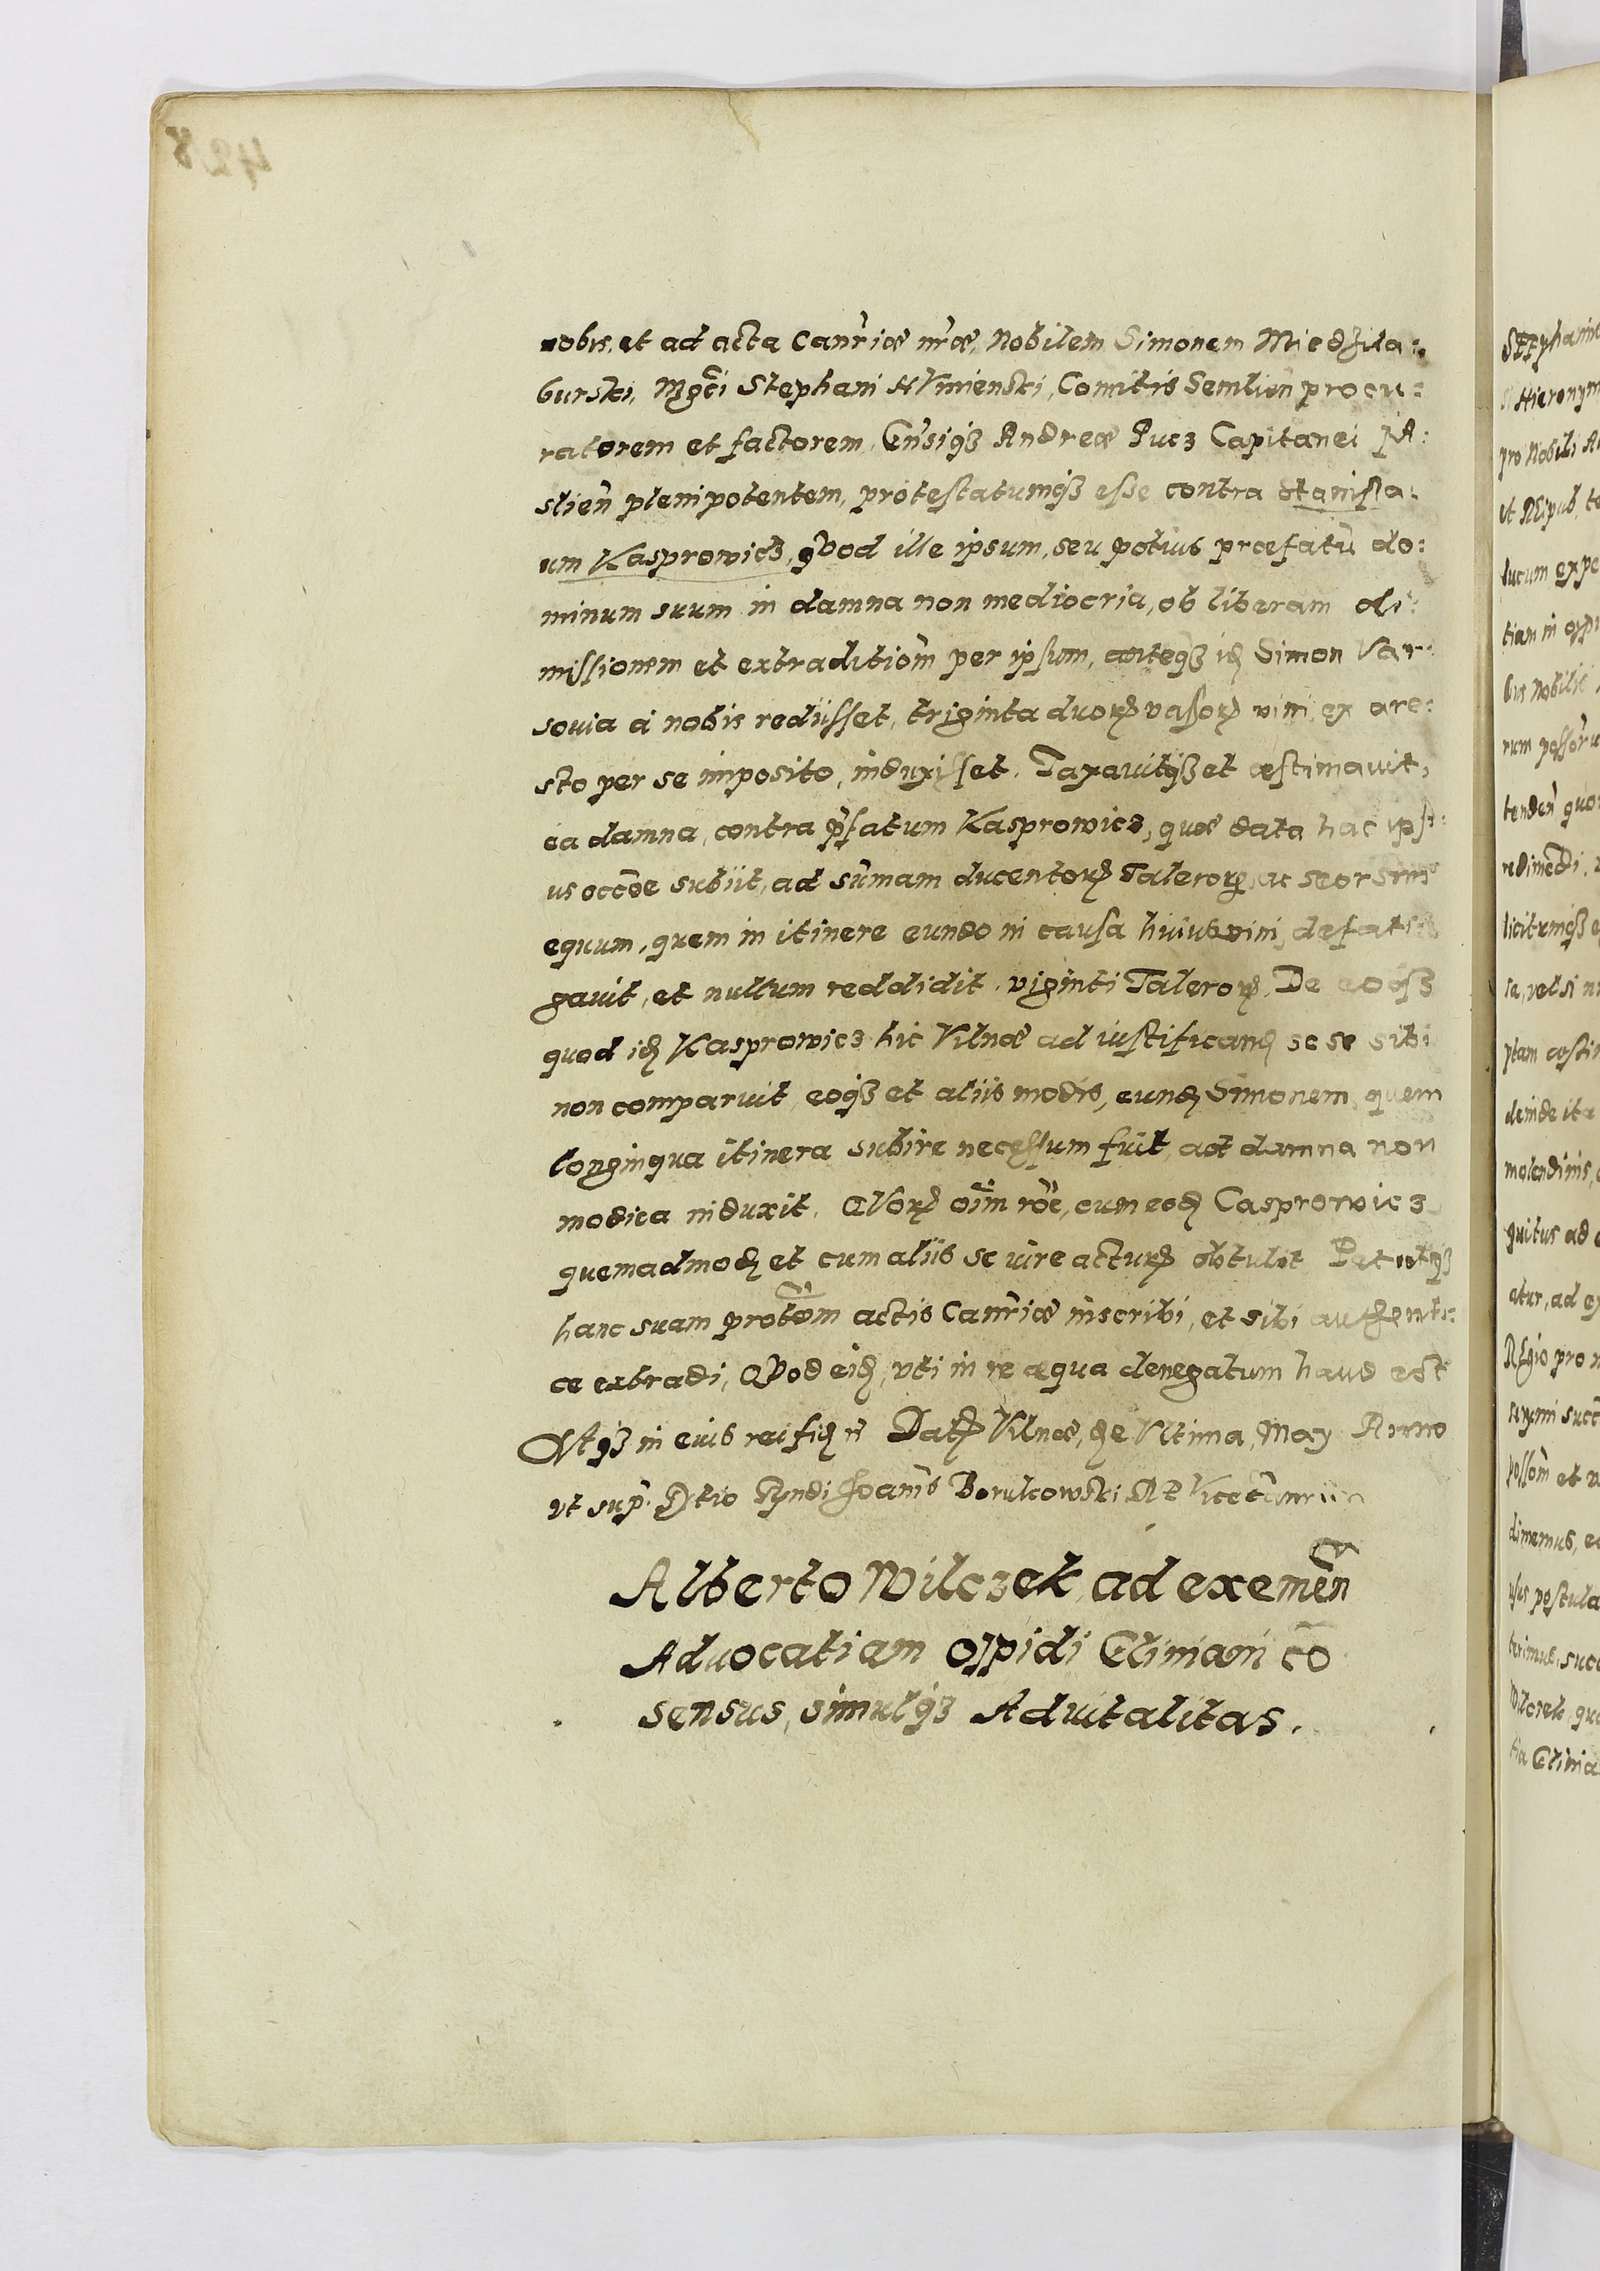 nobis, et ad acta Canr̃iæ nr̃æ, Nobilem Simonem Miedzila:
burski, Mgci Stephani Comitis Semlien̄ procu:
ratorem et factorem, Gn̄siqȝ Andreæ Pucȝ Capitanei
slien̄ plenipotentem, protestatumqȝ esse contra Stanisla:
um Kasprowicȝ, qvod ille ipsum, seu potius præfatū do:
minum suum in damna non mediocria, ob liberam di:
missionem et extraditiōm per ipsum, anteqȝ iđ Simon Var:
sovia a nobis rediisset, triginta duorꝝ vasorꝝ vini, ex are:
sto per se imposito, induxisset. Taxavitqȝ et æstimavit,
ea damna, contra p̄fatum Kasprowicȝ, quæ data hac ipsi:
us occōe subiit, ad sūmam ducentorꝝ Talerorꝝ, ac seorsim
equum, quem in itinere eundo in causa huius vini, defati:
gavit, et nullum reddidit, viginti Talerorꝝ. De eoqȝ
quod iđ Kasprowicȝ hic Vilnæ ad iustificanđ se se sibi
non comparuit, eoqȝ et aliis modis, eunđ Simonem, quem
longinqua itinera subire necessum fuit, ad damna non
modica induxit. QVorꝝ oīm rōe, cum eođ Casprowicȝ
quemadmođ et cum aliis se iure acturꝝ obtulit. Petiitqȝ
hanc suam prot̄om actis Canr̃iæ inscribi, et sibi authenti:
ce extradi, QVod eiđ, vti in re æqua denegatum haud est
In eius rei fiđ Datꝝ Vilnæ, die Vltima, May Anno
vt sup̄. Joan̄is Borukowski R P Vicecan̄rii
Alberto Wilcȝek, ad exemēn
Advocatiam oppidi Glinian̄ cō
sensus, simulqȝ Advitalitas.